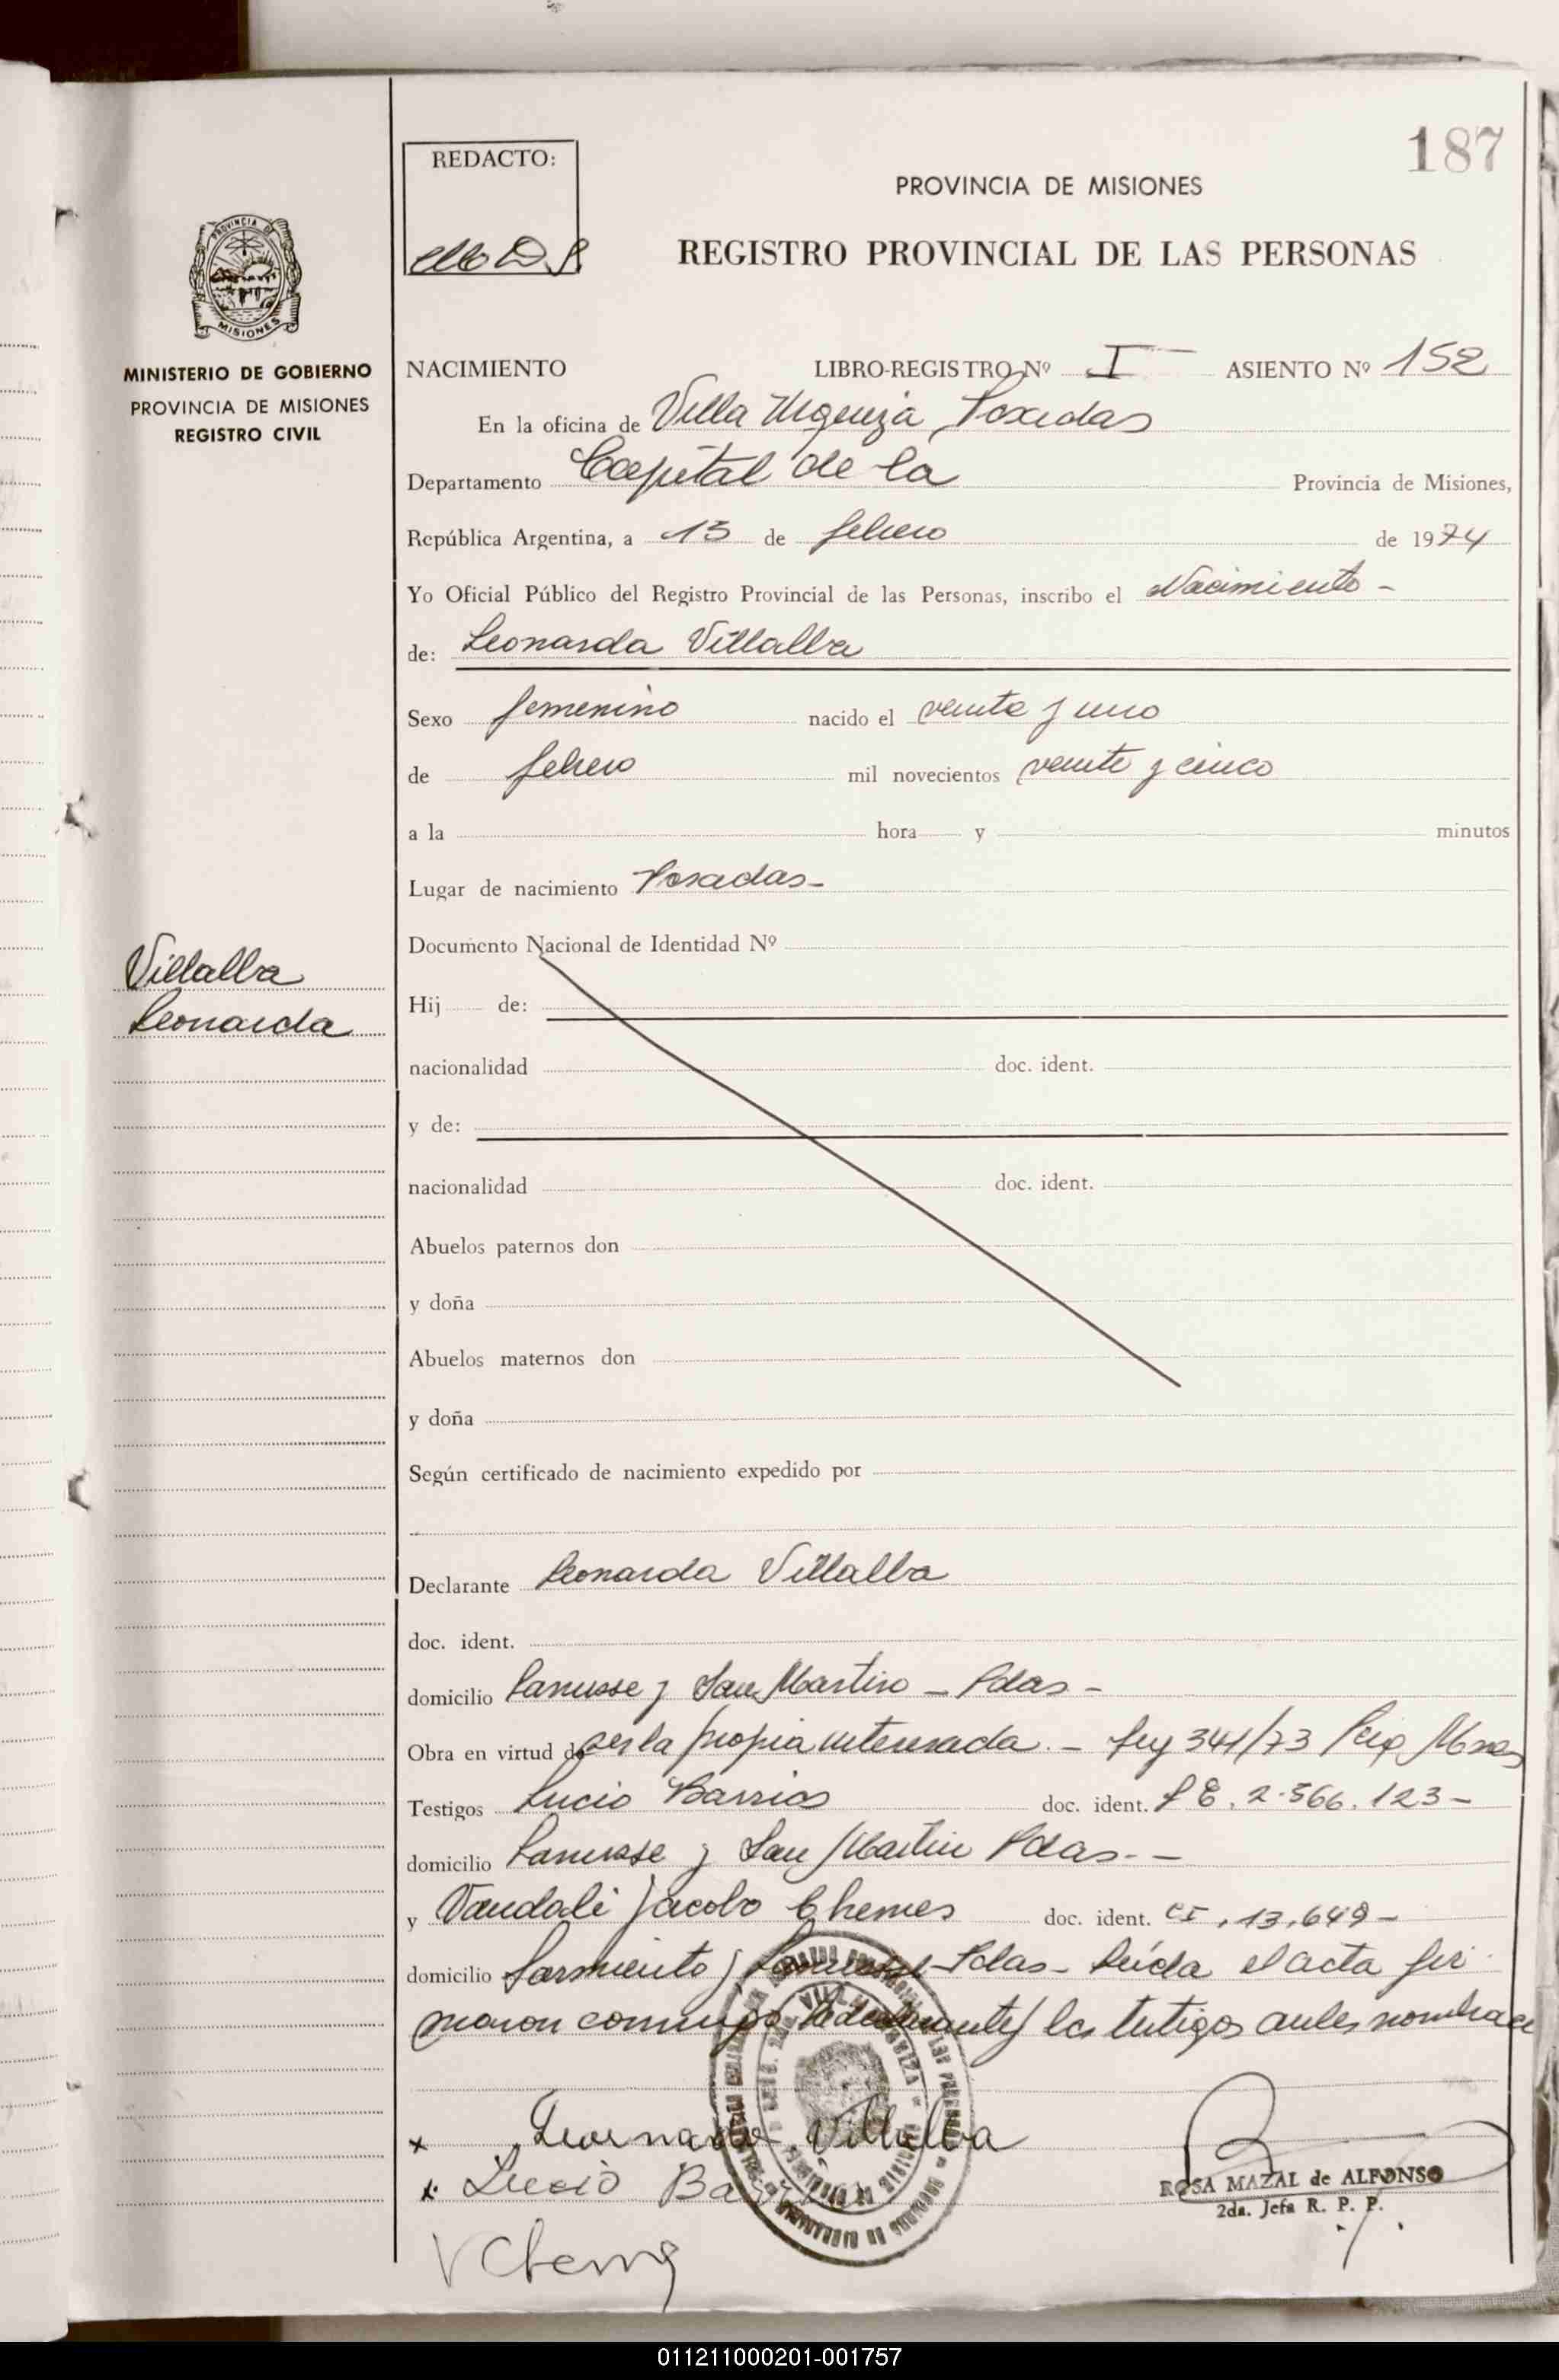 187
REDACTO:
PROVINCIA DE MISIONES
REGISTRO PROVINCIAL DE LAS PERSONAS
PROVINCIA DE
MISIONES
MINISTERIO DE GOBIERNO
PROVINCIA DE MISIONES
REGISTRO CIVIL
NACIMIENTO LIBRO-REGISTRO Nº I ASIENTO Nº 152
En la oficina de Villa Urquiza, Posadas
Departamento Capital de la Provincia de Misiones,
República Argentina, a 13 de febrero de 1974
Yo Oficial Público del Registro Provincial de las Personas, inscribo el Nacimiento -
de: Leonarda Villalba
Sexo femenino nacido el veinte y uno
de febrero mil novecientos veinte y cinco
a la hora y minutos
Lugar de nacimiento Posadas-
Documento Nacional de Identidad Nº
Villalba
Leonarda
Hij de:
nacionalidad doc. ident.
y de:
nacionalidad doc. ident.
Abuelos paternos don
y doña
Abuelos maternos don
y doña
Según certificado de nacimiento expedido por
Declarante Leonarda Villalba
doc. ident.
domicilio Lanusse y San Martin - Pdas -
Obra en virtud de ser la propia interesada. - Ley 341/73
Testigos Lucio Barrios doc. ident. L E. 2.566.123-
domicilio Lanusse y San Martin Pdas. -
y Vandali Jacobo Chemes doc. ident. CI, 13,649-
domicilio Sarmiento y Pdas- Leída el acta fir
maron conmigo la declarante y los testigos antes nombrados
x Leornarda Villalba
x Lucio Barrios
V Chemes
ROSA MAZAL de ALFONSO
2da. Jefa R. P. P.
011211000201-001757